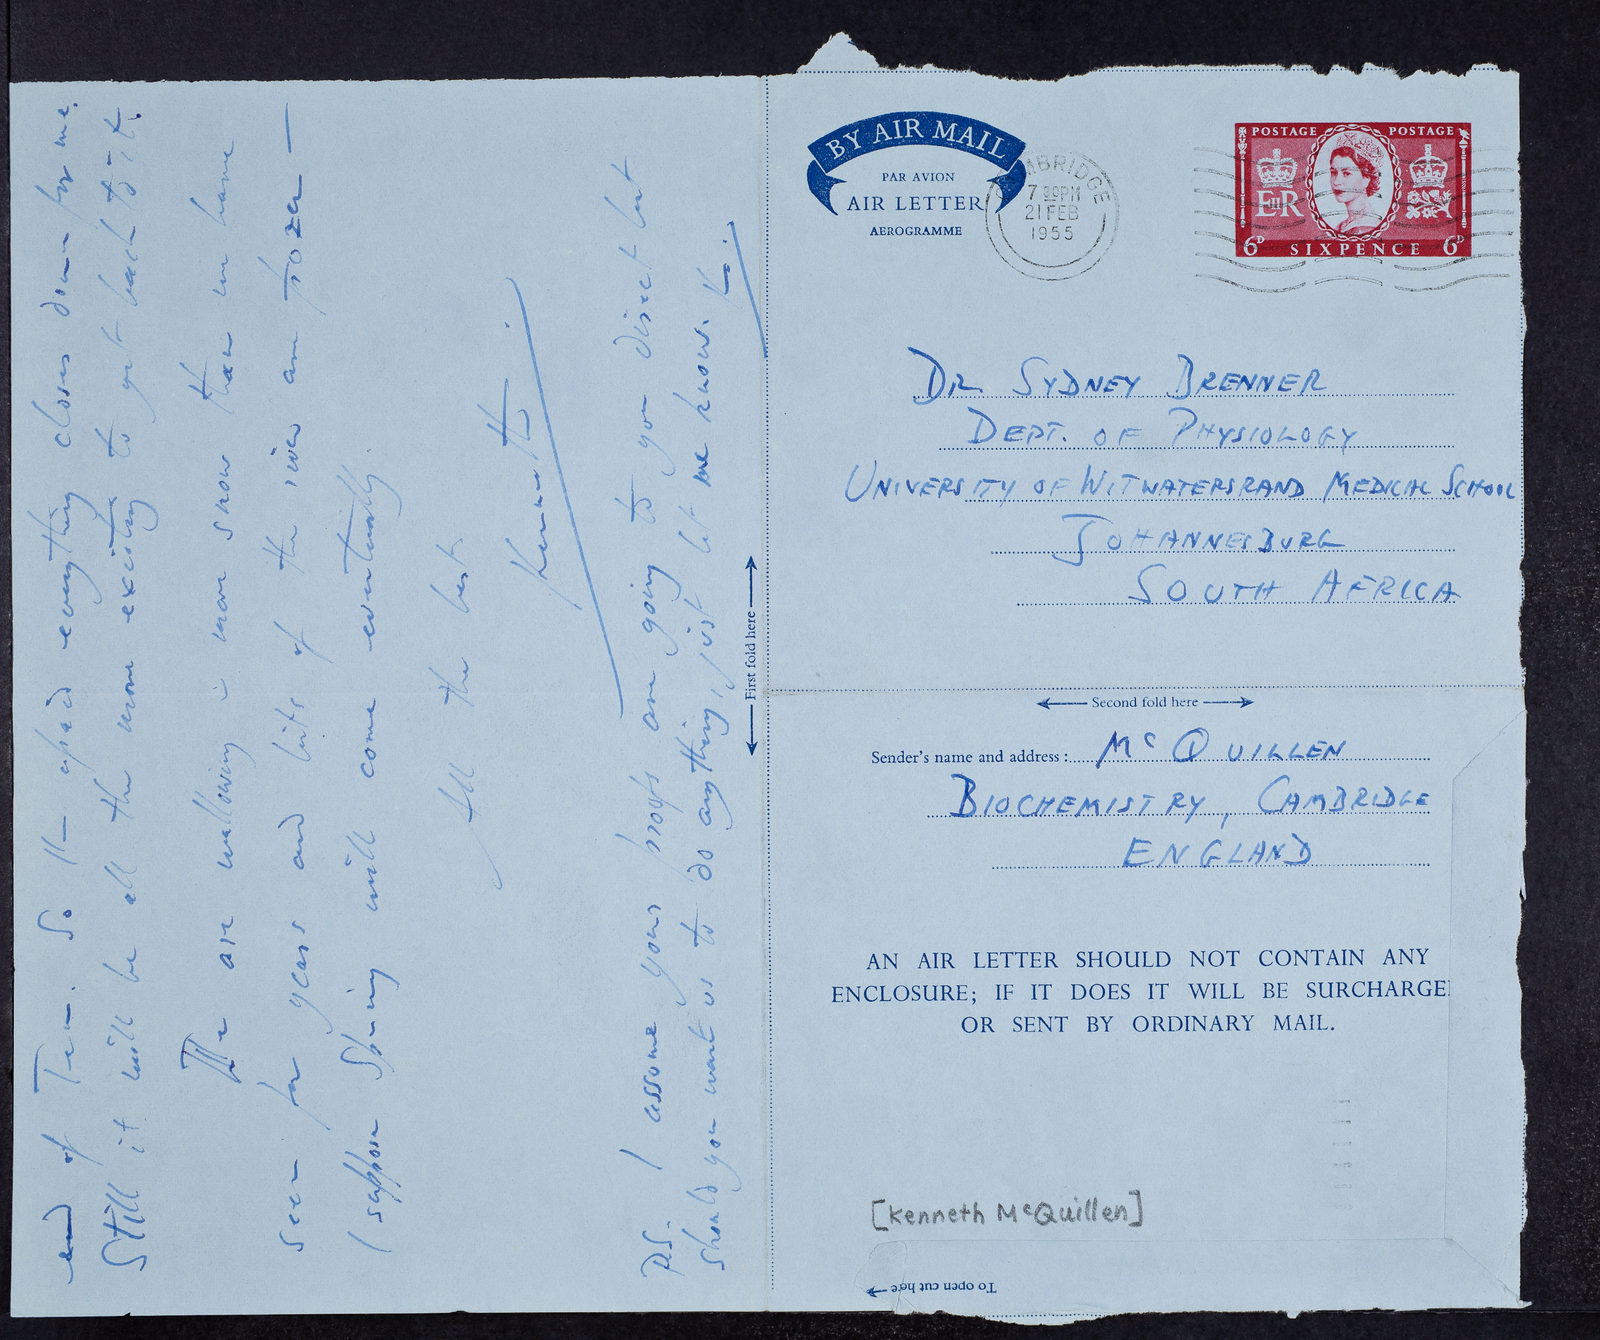 end of Term. So the upset everything closes down for me.
Still it will be all the more exciting to get back to it.
The are wallowing in more snow than we have
seen for years and bits of the river are frozen —
I suppose Spring will come eventually.
All the best
Kenneth.
P.S. I assume your proofs are going to you direct but
should you want us to do anything, just let me know. K.
First fold here
BY AIR MAIL
PAR AVION
AIR LETTER
AEROGRAMME
CAMBRIDGE
7 PM
21 FEB
1955
POSTAGE POSTAGE
E II R
6D SIXPENCE 6D
DR SYDNEY BRENNER
DEPT. OF PHYSIOLOGY
UNIVERSITY OF WITWATERSRAND MEDICAL SCHOOL
JOHANNESBURG
SOUTH AFRICA
Second fold here
Sender's name and address: McQUILLEN
BIOCHEMISTRY, CAMBRIDGE
ENGLAND
AN AIR LETTER SHOULD NOT CONTAIN ANY
ENCLOSURE; IF IT DOES IT WILL BE SURCHARGE
OR SENT BY ORDINARY MAIL.
[Kenneth McQuillen]
To open cut here